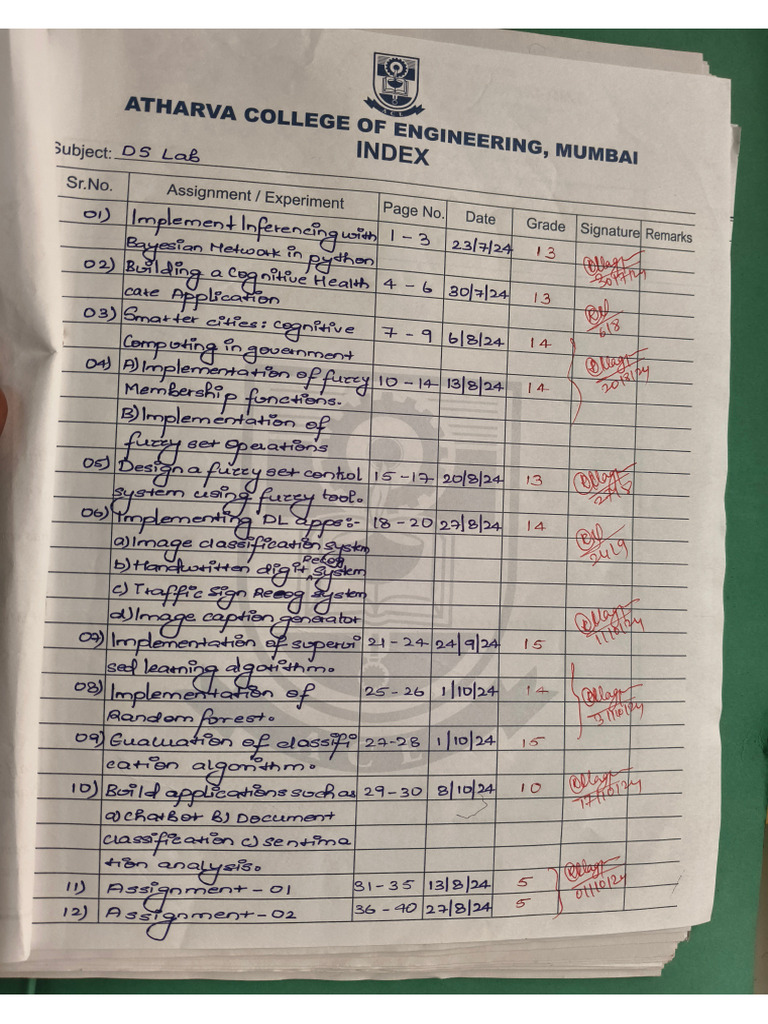 A C E
ATHARVA COLLEGE OF ENGINEERING, MUMBAI
INDEX
Subject: DS Lab
Sr.No. Assignment / Experiment Page No. Date Grade Signature Remarks
01) Implement Inferencing with 1 - 3 23/7/24 13
Bayesian Network in python 30/7/24
02) Building a Cognitive Health 4 - 6 30/7/24 13
care Application 6/8
03) Smarter cities: cognitive 7 - 9 6/8/24 14
Computing in government
04) A) Implementation of fuzzy 10 - 14 13/8/24 14 20/8/24
Membership functions.
B) Implementation of
fuzzy set operations
05) Design a fuzzy set control 15 -17 20/8/24 13
system using fuzzy tool. 27/8
06) Implementing DL apps:- 18 - 20 27/8/24 14
a) Image classification system 24/9
b) Handwritten digit Recog system
c) Traffic Sign Recog system
d) Image caption generator
07) Implementation of supervi 21 - 24 24/9/24 15 1/10/24
sed learning algorithm.
08) Implementation of 25 - 26 1/10/24 14
Random forest.
09) Evaluation of classifi 27-28 1/10/24 15
cation algorithm.
10) Build applications such as 29 - 30 8/10/24 10 17/10/24
a) chatbot B) Document
classification c) sentima
tion analysis.
11) Assignment - 01 31 - 35 13/8/24 5 01/10/24
12) Assignment - 02 36 - 40 27/8/24 5